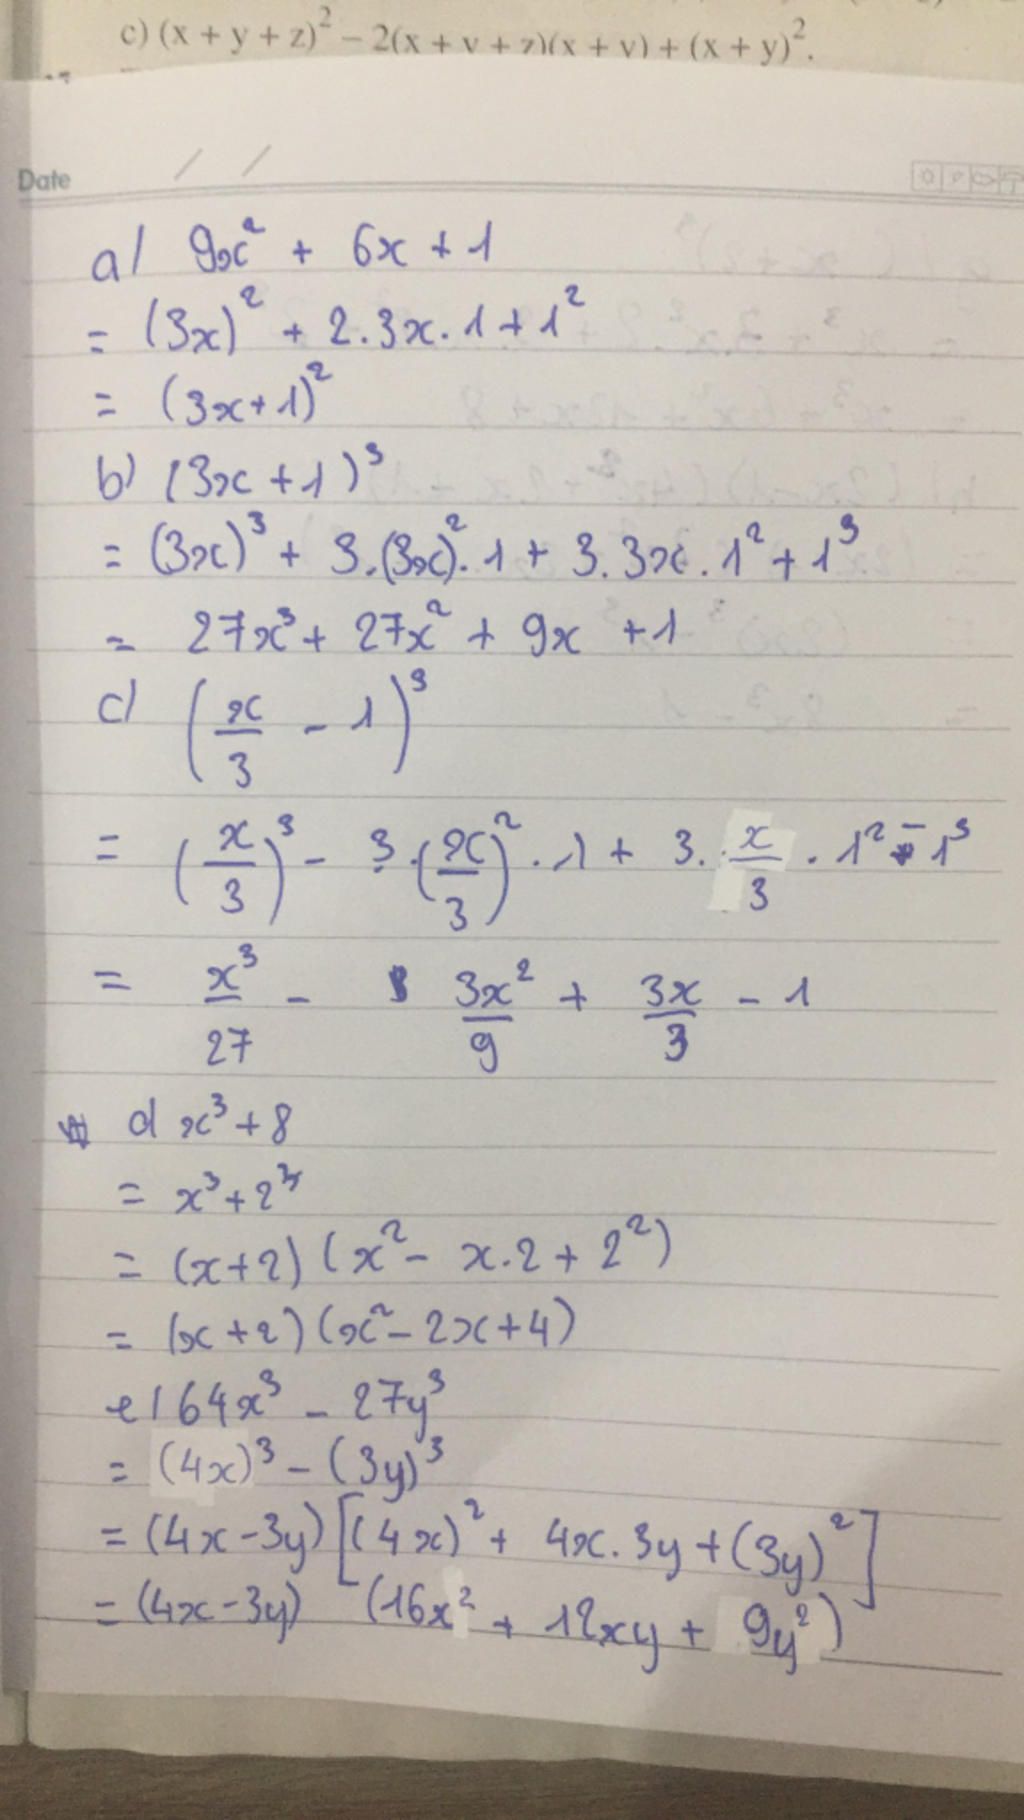 c) (x + y + z)² – 2(x + y + z)(x + y) + (x + y)².
Date / /
a/ 9x² + 6x + 1
= (3x)² + 2.3x.1 + 1²
= (3x+1)²
b) (3x + 1)³
= (3x)³ + 3.(3x)².1 + 3.3x.1² + 1³
= 27x³ + 27x² + 9x + 1
c/ (x/3 - 1)³
= (x/3)³ - 3.(x/3)².1 + 3.x/3.1² - 1³
= x³/27 - 3x²/9 + 3x/3 - 1
d x³ + 8
= x³ + 2³
= (x+2) (x² - x.2 + 2²)
= (x+2) (x² - 2x + 4)
e/ 64x³ - 27y³
= (4x)³ - (3y)³
= (4x - 3y) [(4x)² + 4x.3y + (3y)²]
= (4x - 3y) (16x² + 12xy + 9y²)